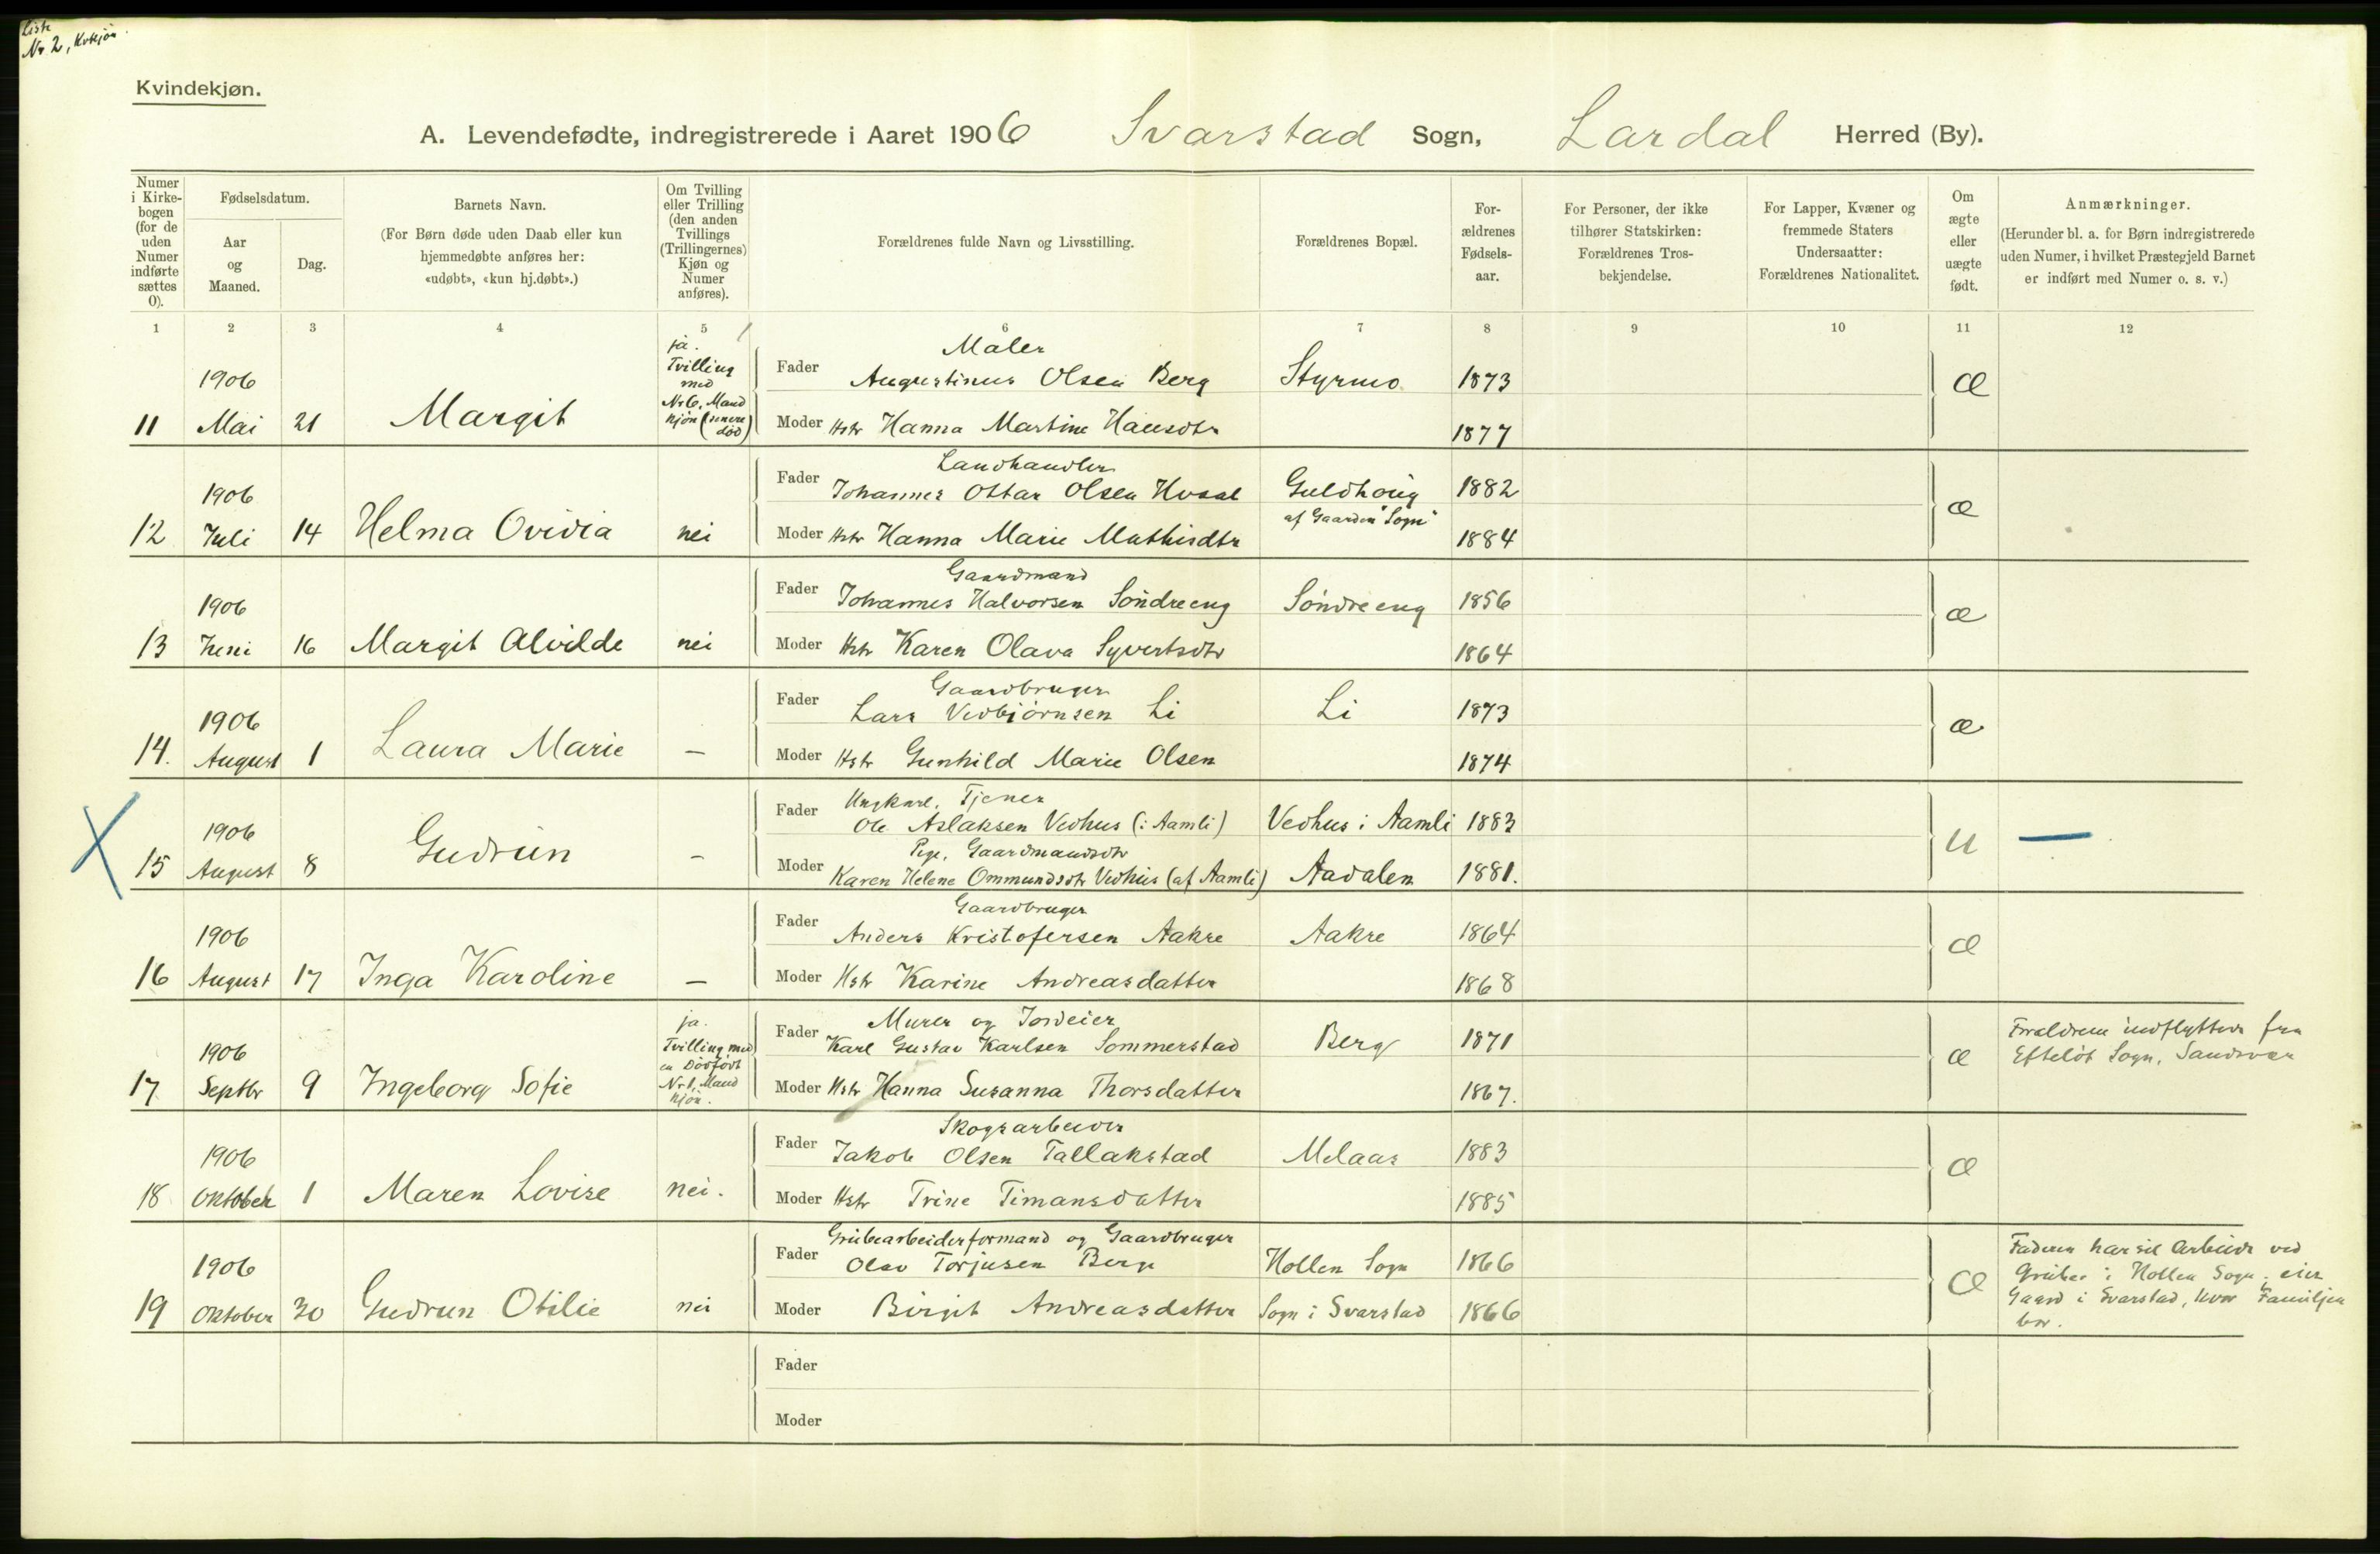 Liste
Nr 2, Kvkjön.
Kvindekjøn.
A. Levendefødte, indregistrerede i Aaret 1906 Svarstad Sogn, Lardal Herred (By).
Numer i Kirkebogen (for de uden Numer indførte sættes 0).
Fødselsdatum.
Aar og Maaned.
Dag.
Barnets Navn.
(For Børn døde uden Daab eller kun hjemmedøbte anføres her: «udøbt», «kun hj.døbt».)
Om Tvilling eller Trilling (den anden Tvillings (Trillingernes) Kjøn og Numer anføres).
Forældrenes fulde Navn og Livsstilling.
Forældrenes Bopæl.
Forældrenes Fødselsaar.
For Personer, der ikke tilhører Statskirken: Forældrenes Trosbekjendelse.
For Lapper, Kvæner og fremmede Staters Undersaatter: Forældrenes Nationalitet.
Om ægte eller uægte født.
Anmærkninger.
(Herunder bl. a. for Børn indregistrerede uden Numer, i hvilket Præstegjeld Barnet er indført med Numer o. s. v.)
1 2 3 4 5 6 7 8 9 10 11 12
11 1906 Mai 21 Margit ja. Tvilling med Nr 6, Mandkjön (senere död)
Maler
Fader Augustinus Olsen Berg Styrmo 1873 Æ
Moder Hstr Hanna Martine Hansdtr 1877
12 1906 Juli 14 Helma Ovidia nei
Landhandler
Fader Johannes Ottar Olsen Hvaal Guldhaug af Gaarden "Sogn" 1882 æ
Moder Hstr Hanna Marie Mathisdtr 1884
13 1906 Juni 16 Margit Alvilde nei
Gaardmand
Fader Johannes Halvorsen Söndreeng Söndreeng 1856 æ
Moder Hstr Karen Olava Syvertsdtr 1864
14. 1906 August 1 Laura Marie —
Gaardbruger
Fader Lars Vedbjörnsen Li Li 1873 æ
Moder Hstr Gunhild Marie Olsen 1874
X 15 1906 August 8 Gudrun –
Ungkarl, Tjener
Fader Ole Aslaksen Vedhus (i Aamli) Vedhus i Aamli 1883 U —
Pige, Gaardmandsdtr
Moder Karen Helene Ommundsdtr Vedhus (af Aamli) Aadalen 1881.
16 1906 August 17 Inga Karoline —
Gaardbruger
Fader Anders Kristofersen Aakre Aakre 1864 Æ
Moder Hstr Karine Andreasdatter 1868
17 1906 Septbr 9 Ingeborg Sofie ja. Tvilling med en Dödfödt Nr 1, Mandkjön.
Murer og Jordeier
Fader Karl Gustav Karlsen Sommerstad Berg 1871 Æ Forældrene indflyttede fra Efteløt Sogn, Sandsvær
Moder Hstr Hanna Susanna Thorsdatter 1867.
18 1906 Oktober 1 Maren Lovise nei.
Skogsarbeider
Fader Jakob Olsen Tallakstad Melaas 1883 Æ
Moder Hstr Trine Timansdatter 1885
19 1906 Oktober 30 Gudrun Otilie nei
Grubearbeiderformand og Gaardbruger
Fader Olav Torjusen Berge Hollen Sogn 1866 Æ Faderen har sit Arbeide ved Gruber i Hollen Sogn; eier Gaard i Svarstad, hvor Familjen bor.
Moder Birgit Andreasdatter Sogn i Svarstad 1866
Fader
Moder